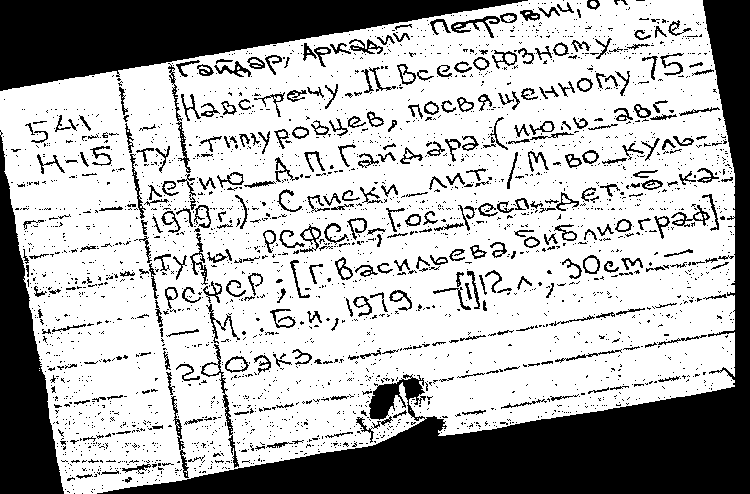 Гайдар, Аркадий Петрович, о н
Навстречу II Всесоюзному сле-
541
Н-15
ту тимуровцев, посвященному 75-
летию А.П.Гайдара (июль-авг.
1979г.). Списки лит. / М-во куль-
туры РСФСР, Гос. респ. дет. б-ка
РСФСР; [Г.Васильева, библиограф].
— М. : Б.и., 1979. — [1], 12 л.; 30 см. —
200экз.